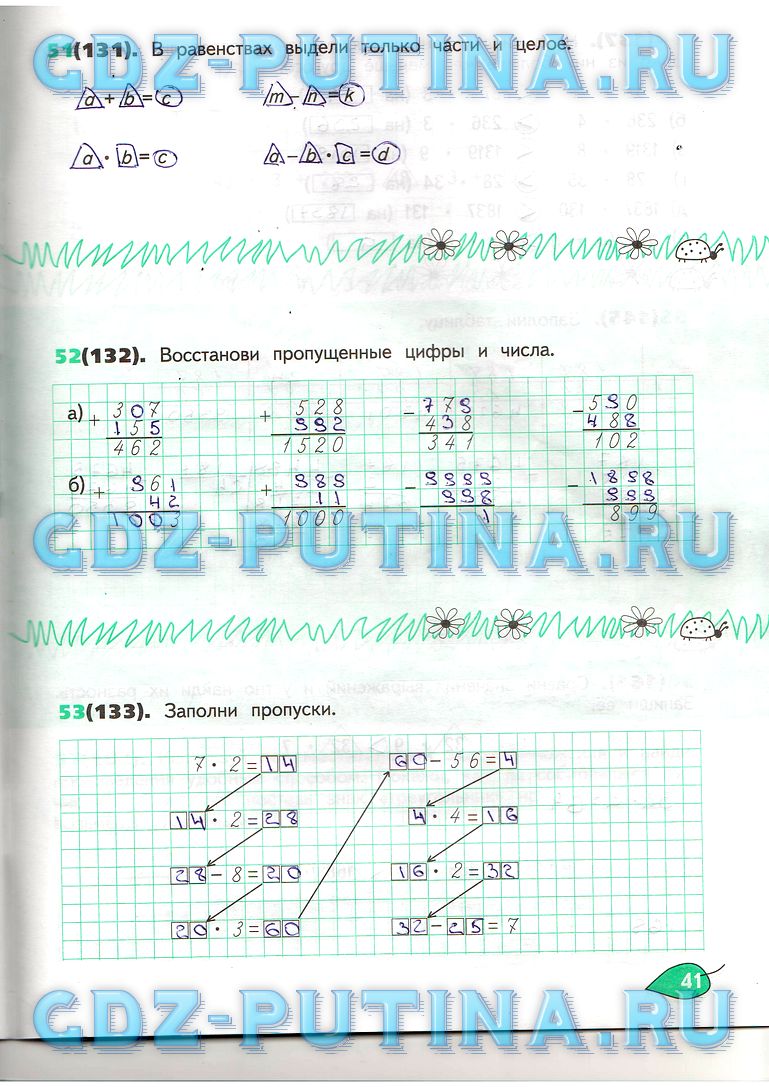 51(131). В равенствах выдели только части и целое.
GDZ-PUTINA.RU
a + b = c   m − n = k
a · b = c   a − b · c = d
52(132). Восстанови пропущенные цифры и числа.
а) + 307   + 528   − 779   − 590
155   992   438   488
462   1520   341   102
б) + 961   + 989   − 9999   − 1898
42   11   998   999
1003   1000   1   899
GDZ-PUTINA.RU
53(133). Заполни пропуски.
7 · 2 = 14   60 − 56 = 4
14 · 2 = 28   4 · 4 = 16
28 − 8 = 20   16 · 2 = 32
20 · 3 = 60   32 − 25 = 7
41
GDZ-PUTINA.RU